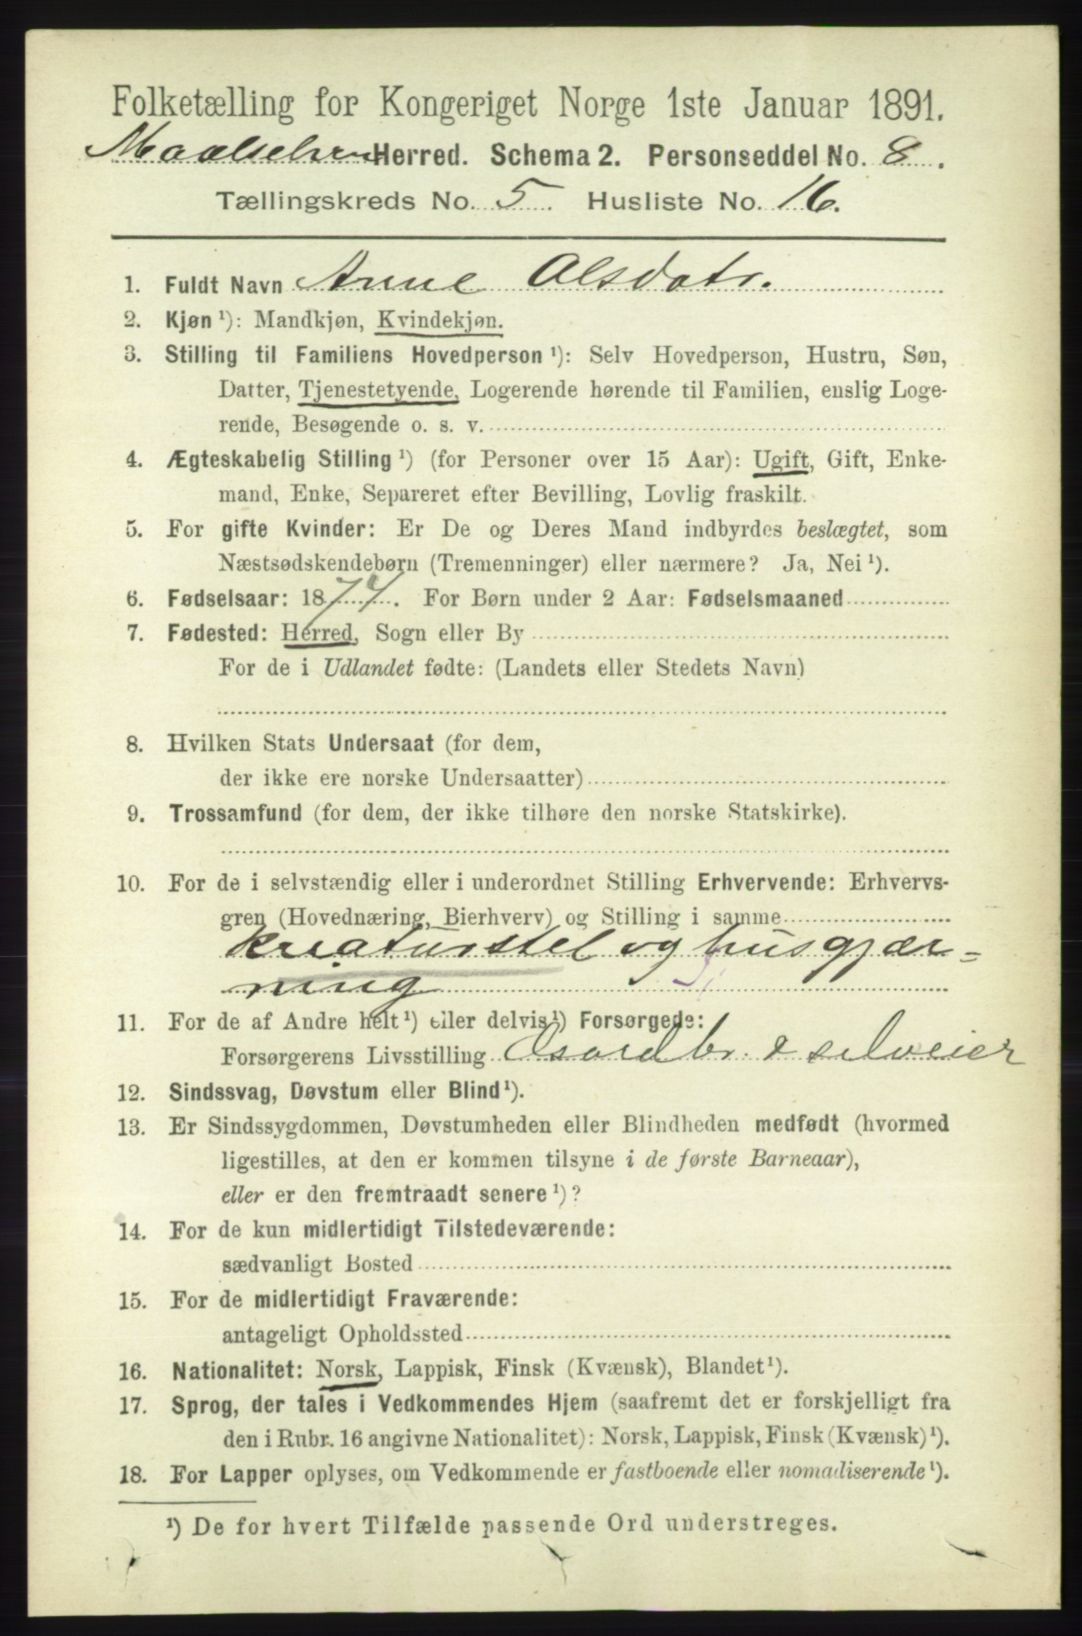 Folketælling for Kongeriget Norge 1ste Januar 1891.
Maalselven Herred. Schema 2. Personseddel No. 8.
Tællingskreds No. 5. Husliste No. 16.
1. Fuldt Navn Anne Olsdatr.
2. Kjøn¹): Mandkjøn, Kvindekjøn.
3. Stilling til Familiens Hovedperson¹): Selv Hovedperson, Hustru, Søn,
Datter, Tjenestetyende, Logerende hørende til Familien, enslig Loge-
rende, Besøgende o. s. v.
4. Ægteskabelig Stilling¹) (for Personer over 15 Aar): Ugift, Gift, Enke-
mand, Enke, Separeret efter Bevilling, Lovlig fraskilt.
5. For gifte Kvinder: Er De og Deres Mand indbyrdes beslægtet, som
Næstsødskendebørn (Tremenninger) eller nærmere? Ja, Nei¹).
6. Fødselsaar: 1874. For Børn under 2 Aar: Fødselsmaaned
7. Fødested: Herred, Sogn eller By
For de i Udlandet fødte: (Landets eller Stedets Navn)
8. Hvilken Stats Undersaat (for dem,
der ikke ere norske Undersaatter)
9. Trossamfund (for dem, der ikke tilhøre den norske Statskirke).
10. For de i selvstændig eller i underordnet Stilling Erhvervende: Erhvervs-
gren (Hovednæring, Bierhverv) og Stilling i samme
kreaturstel og husgjær-
ning
11. For de af Andre helt¹) eller delvis¹) Forsørgede:
Forsørgerens Livsstilling Gaardbr. & selveier
12. Sindssvag, Døvstum eller Blind¹).
13. Er Sindssygdommen, Døvstumheden eller Blindheden medfødt (hvormed
ligestilles, at den er kommen tilsyne i de første Barneaar),
eller er den fremtraadt senere¹)?
14. For de kun midlertidigt Tilstedeværende:
sædvanligt Bosted
15. For de midlertidigt Fraværende:
antageligt Opholdssted
16. Nationalitet: Norsk, Lappisk, Finsk (Kvænsk), Blandet¹).
17. Sprog, der tales i Vedkommendes Hjem (saafremt det er forskjelligt fra
den i Rubr. 16 angivne Nationalitet): Norsk, Lappisk, Finsk (Kvænsk)¹).
18. For Lapper oplyses, om Vedkommende er fastboende eller nomadiserende¹).
¹) De for hvert Tilfælde passende Ord understreges.